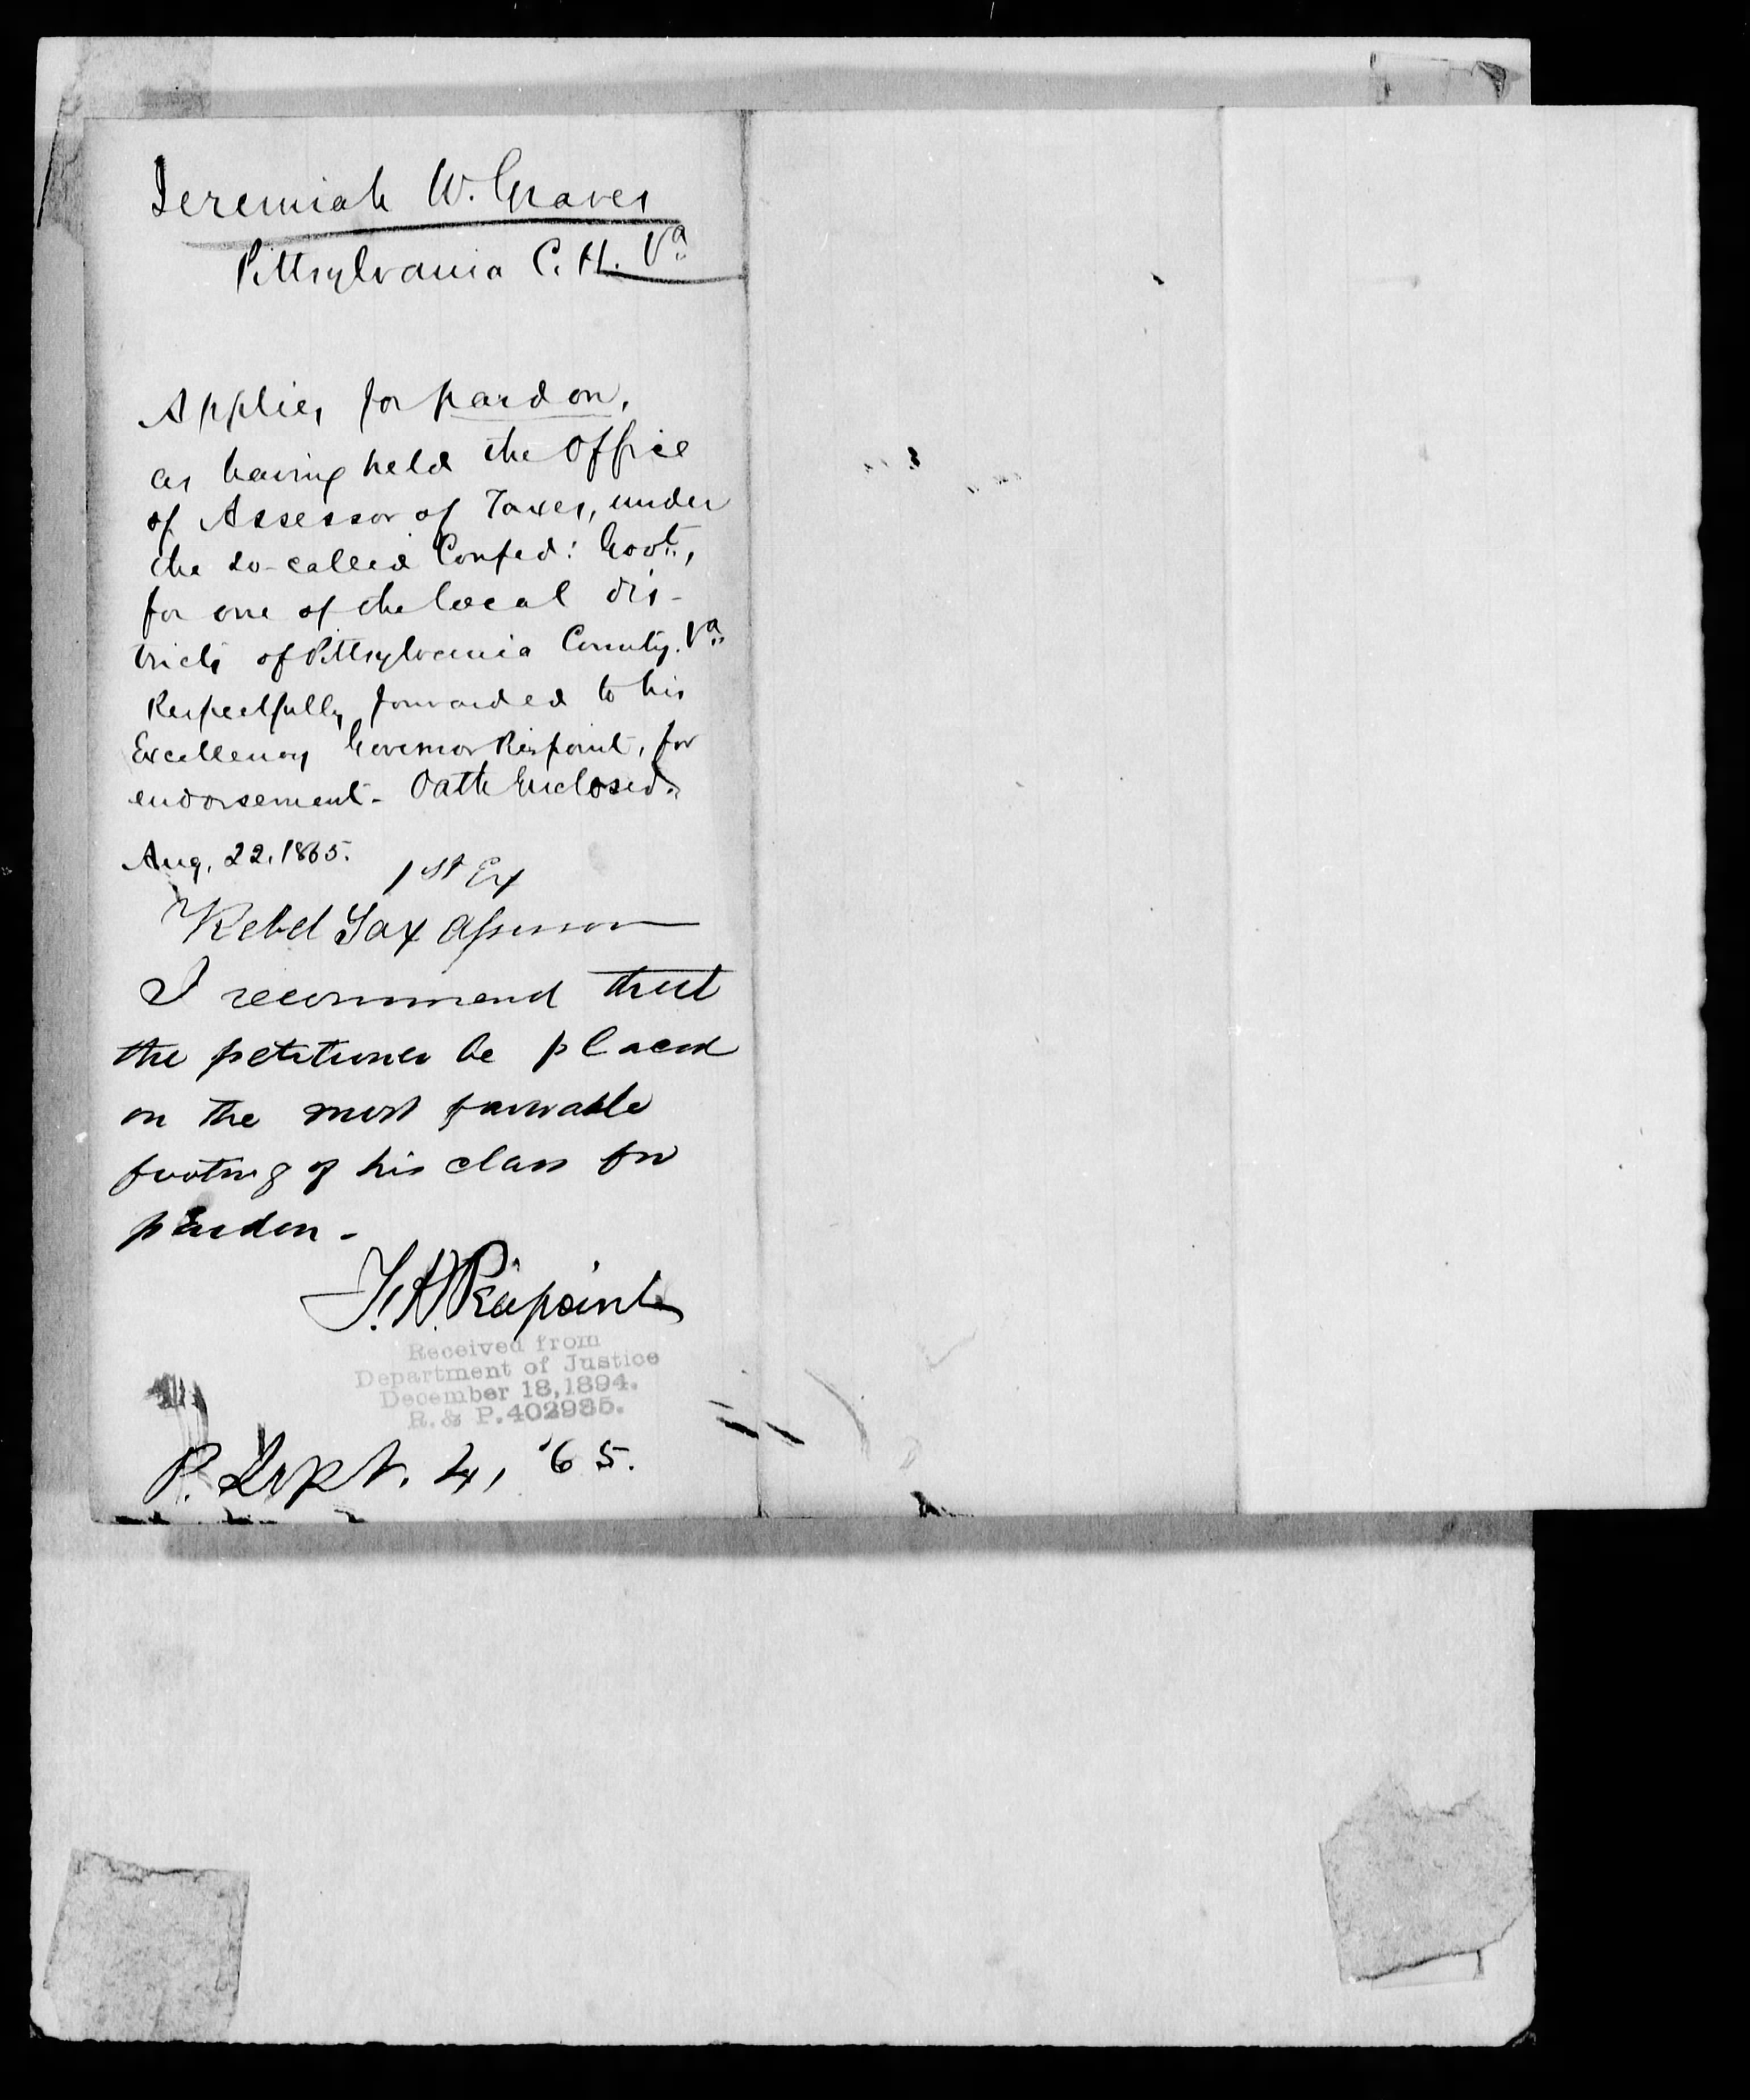 Jeremiah W. Graves
Pittsylvania C. H. Va.
Applies for pardon,
as having held the Office
of Assessor of Taxes, under
the so-called Confed: Govt.,
for one of the local dis-
tricts of Pittsylvania County. Va.
Respectfully forwarded to his
Excellency Governor Pierpoint, for
endorsement - Oath Enclosed.
Aug. 22. 1865.
1st Ex
Rebel Tax Assessor
I recommend that
the petitioner be placed
on the most favorable
footing of his class for
pardon -
F. H. Peirpoint
Received from
Department of Justice
December 18, 1894.
R. & P. 402985.
P. Sept. 4, '65.